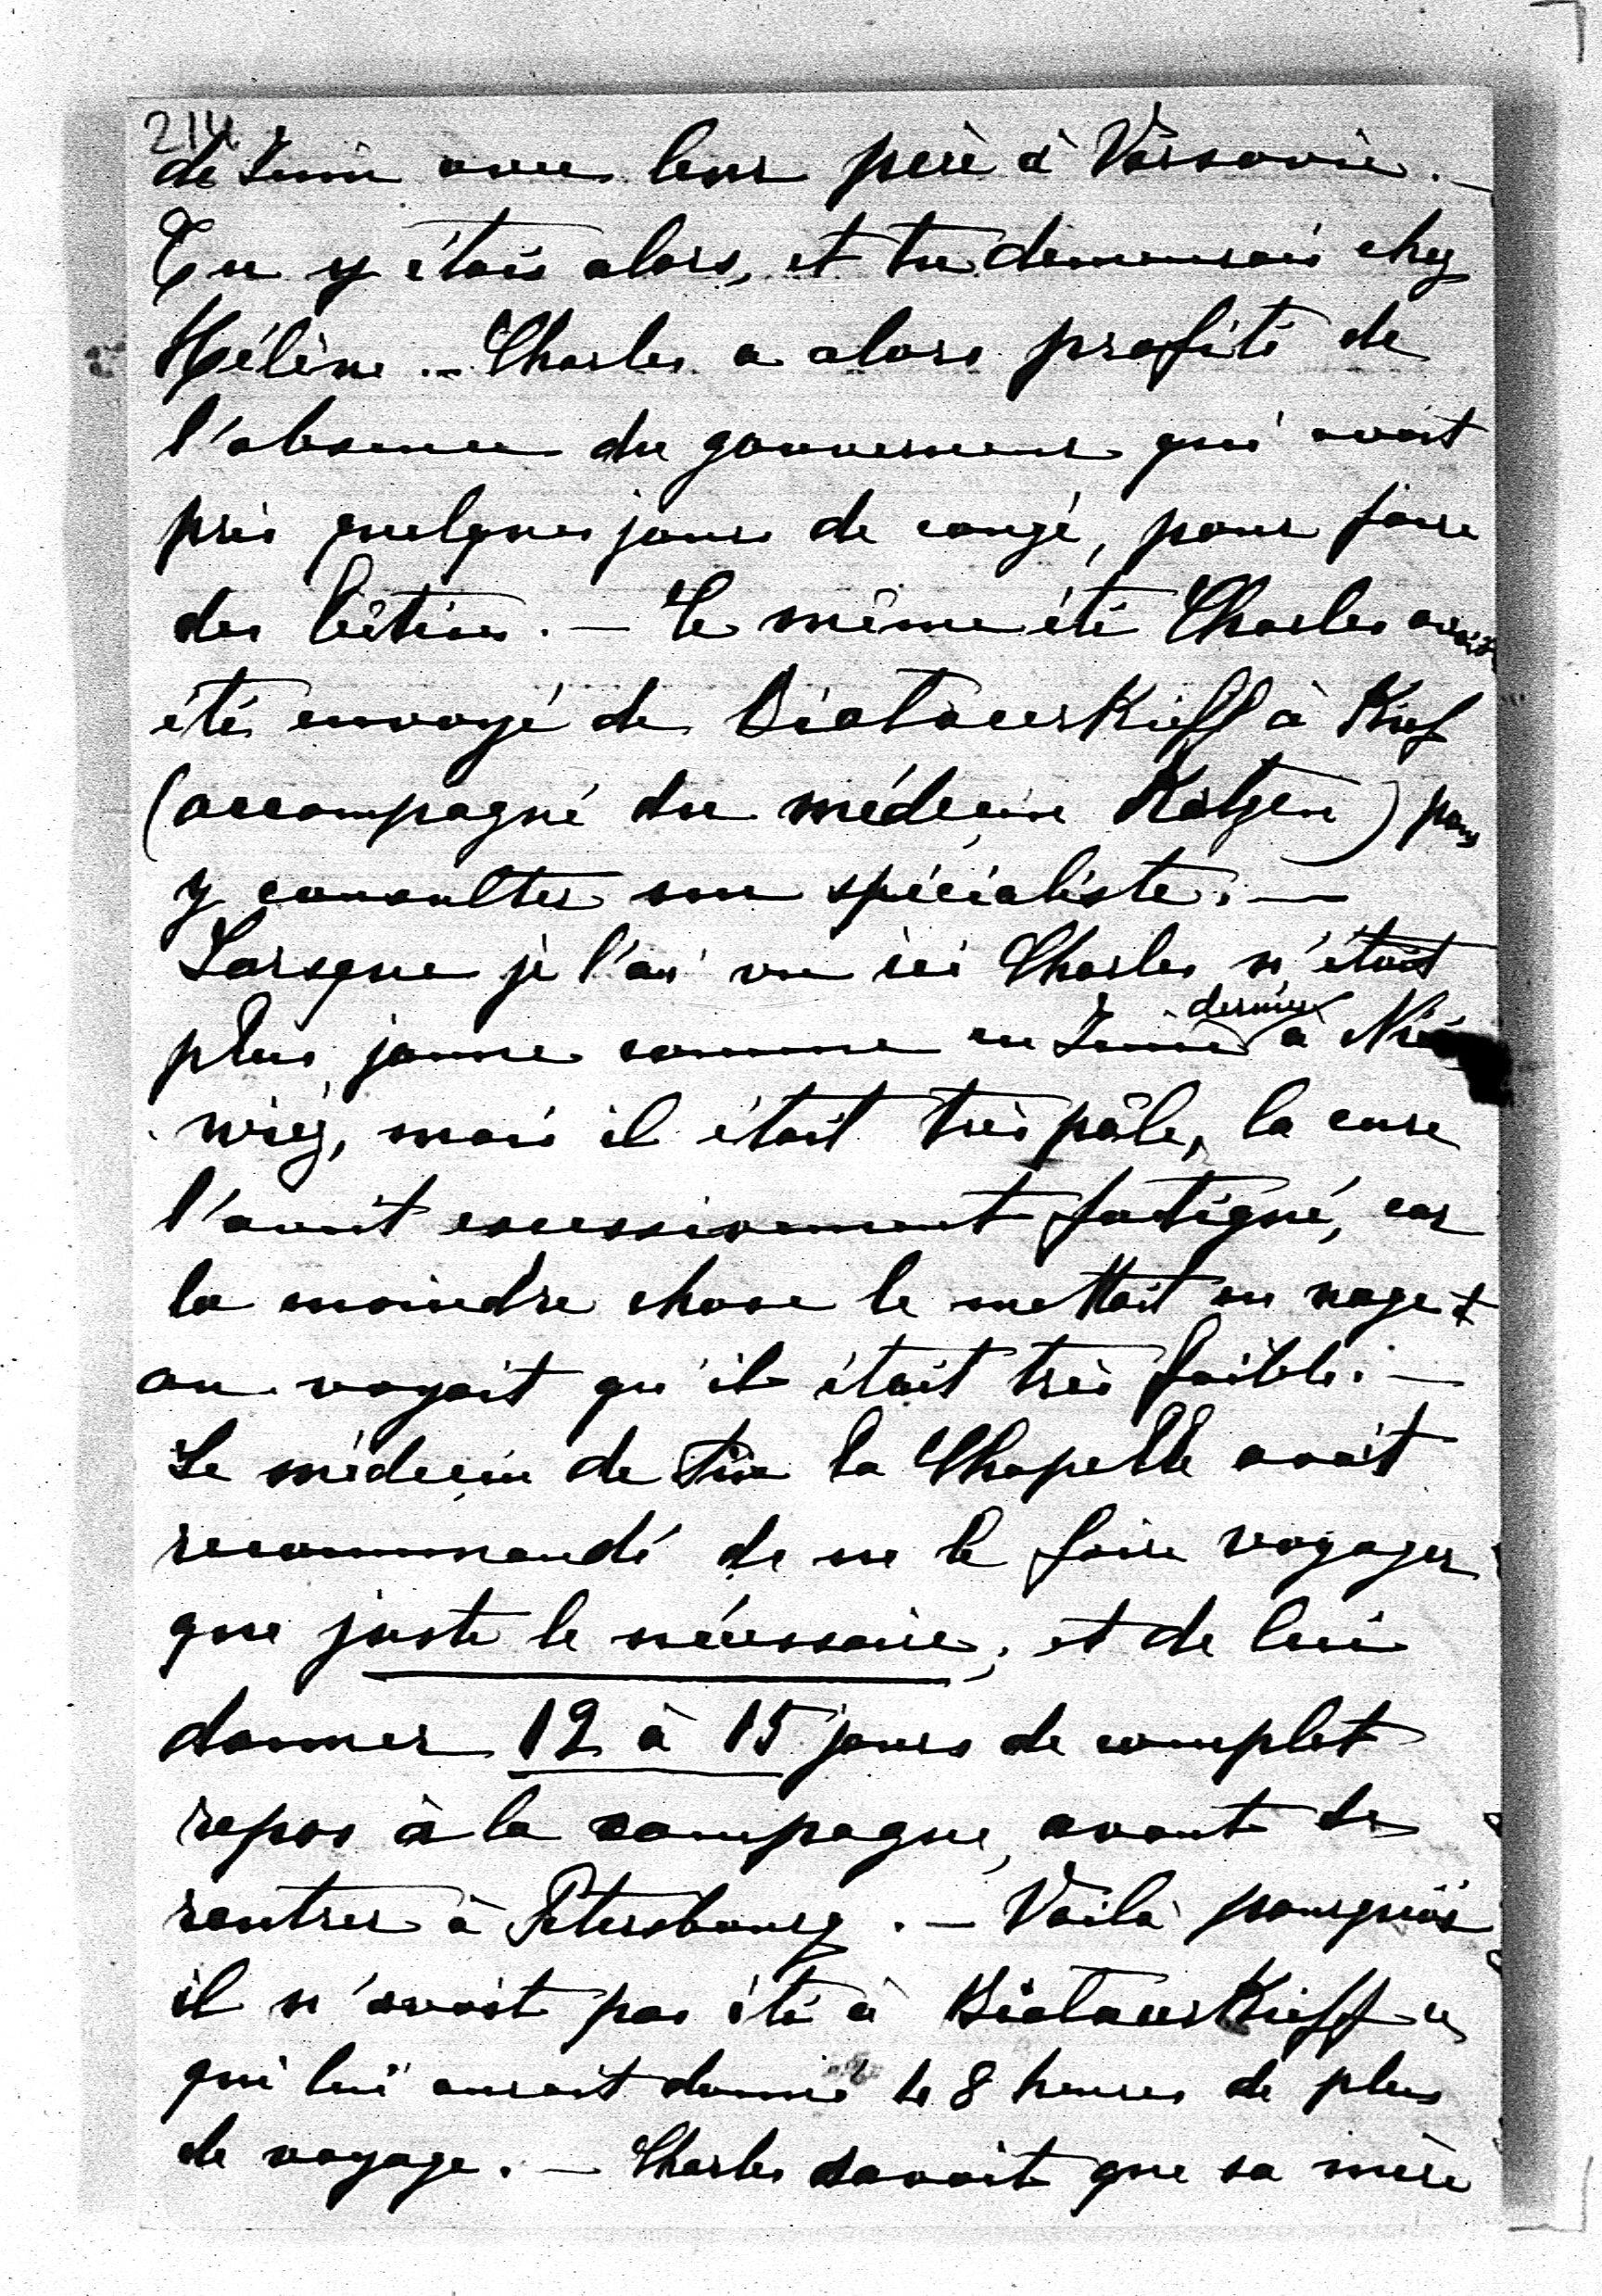 214
de Juin avec leur père à Varsovie. —
Tu y étais alors, et tu demeurais chez
Hélène. — Charles a alors profité de
l'absence du gouverneur qui avait
pris quelques jours de congé, pour faire
des bêtises. — Le même été Charles avait
été envoyé de Biołacerkieff à Kief
(accompagné du médecin Katzen) pour
y consulter un spécialiste. —
Lorsque je l'ai vu ici Charles n'était
plus jaune comme en Juin dernier à Nie
wież, mais il était très pâle, la cure
l'avait excessivement fatigué, car
la moindre chose le mettait en nage et
on voyait qu'il était très faible. —
Le médecin de Aix la Chapelle avait
recommandé de ne le faire voyager
que juste le nécessaire, et de lui
donner 12 à 15 jours de complet
repos à la campagne, avant de
rentrer à Pétersbourg. — Voilà pourquoi
il n'avait pas été à Biołacerkieff ce
qui lui aurait donné 48 heures de plus
de voyage. — Charles savait que sa mère